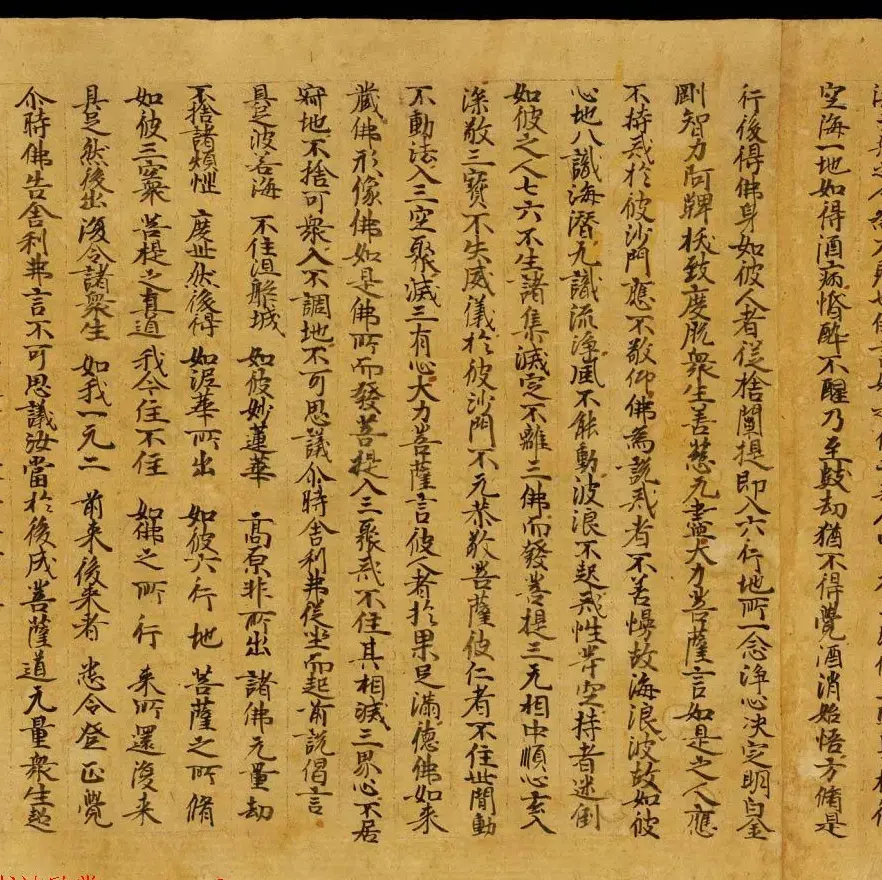 空海一地如得酒病惛酔不醒乃至數劫猶不得覺酒消始悟方脩是
行後得佛身如彼人者從捨闡提即入六行地所一念淨心決定明白金
剛智力阿鞞拔致度脫衆生善慈无盡大力菩薩言如是之人應
不持戒於彼沙門應不敬仰佛爲說戒者不善慢故海浪波故如彼
心地八識海潛九識流淨風不能動波浪不起戒性等空持者迷倒
如彼之人七六不生諸集滅定不離三佛而發菩提三无相中順心玄入
深敬三寶不失威儀於彼沙門不无恭敬菩薩彼仁者不住世間動
不動法入三空聚滅三有心大力菩薩言彼人者於果足滿德佛如來
藏佛形像佛如是佛所而發菩提入三聚戒不住其相滅三界心不居
寂地不捨可衆入不調地不可思議尒時舍利弗從坐而起前說偈言
具足波若海 不住涅槃城 如彼妙蓮華 高原非所出 諸佛无量劫
不捨諸煩惱 度世然後得 如泥華所出 如彼六行地 菩薩之所脩
如彼三空聚 菩提之真道 我今住不住 如佛之所行 來所還復來
具足然後出 復令諸衆生 如我一无二 前來後來者 悉令登正覺
尒時佛告舍利弗言不可思議汝當於後成菩薩道无量衆生超